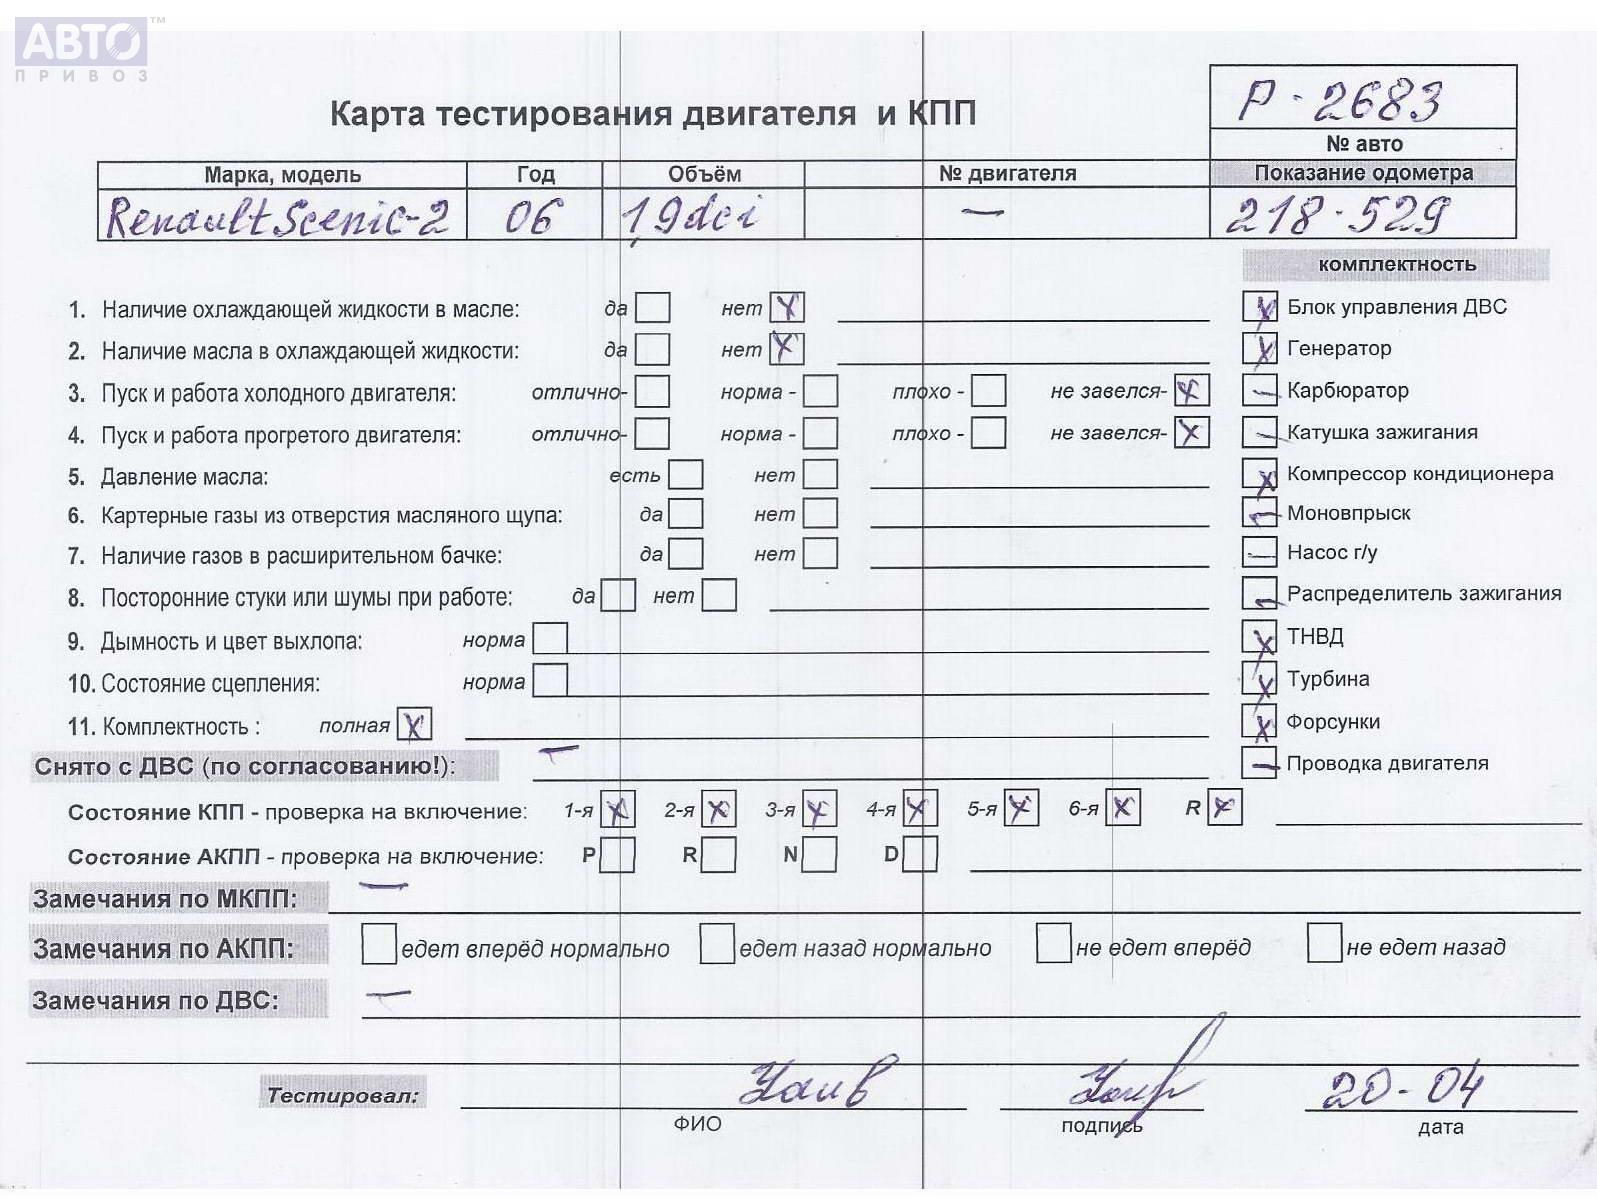 АВТО™
ПРИВОЗ
Р - 2683
Карта тестирования двигателя и КПП
№ авто
Марка, модель Год Объём № двигателя Показание одометра
Renault Scenic-2 06 1,9dci — 218-529
комплектность
1. Наличие охлаждающей жидкости в масле: да нет X
Блок управления ДВС
2. Наличие масла в охлаждающей жидкости: да нет X
Генератор
3. Пуск и работа холодного двигателя: отлично- норма - плохо - не завелся- X
Карбюратор
4. Пуск и работа прогретого двигателя: отлично- норма - плохо - не завелся- X
Катушка зажигания
5. Давление масла: есть нет
Компрессор кондиционера
6. Картерные газы из отверстия масляного щупа: да нет
Моновпрыск
7. Наличие газов в расширительном бачке: да нет
Насос г/у
8. Посторонние стуки или шумы при работе: да нет
Распределитель зажигания
9. Дымность и цвет выхлопа: норма
ТНВД
10. Состояние сцепления: норма
Турбина
11. Комплектность : полная X
Форсунки
Снято с ДВС (по согласованию!): —
Проводка двигателя
Состояние КПП - проверка на включение: 1-я X 2-я X 3-я X 4-я X 5-я X 6-я X R X
Состояние АКПП - проверка на включение: P R N D
Замечания по МКПП: —
Замечания по АКПП: едет вперёд нормально едет назад нормально не едет вперёд не едет назад
Замечания по ДВС: —
Тестировал: 20-04
ФИО подпись дата